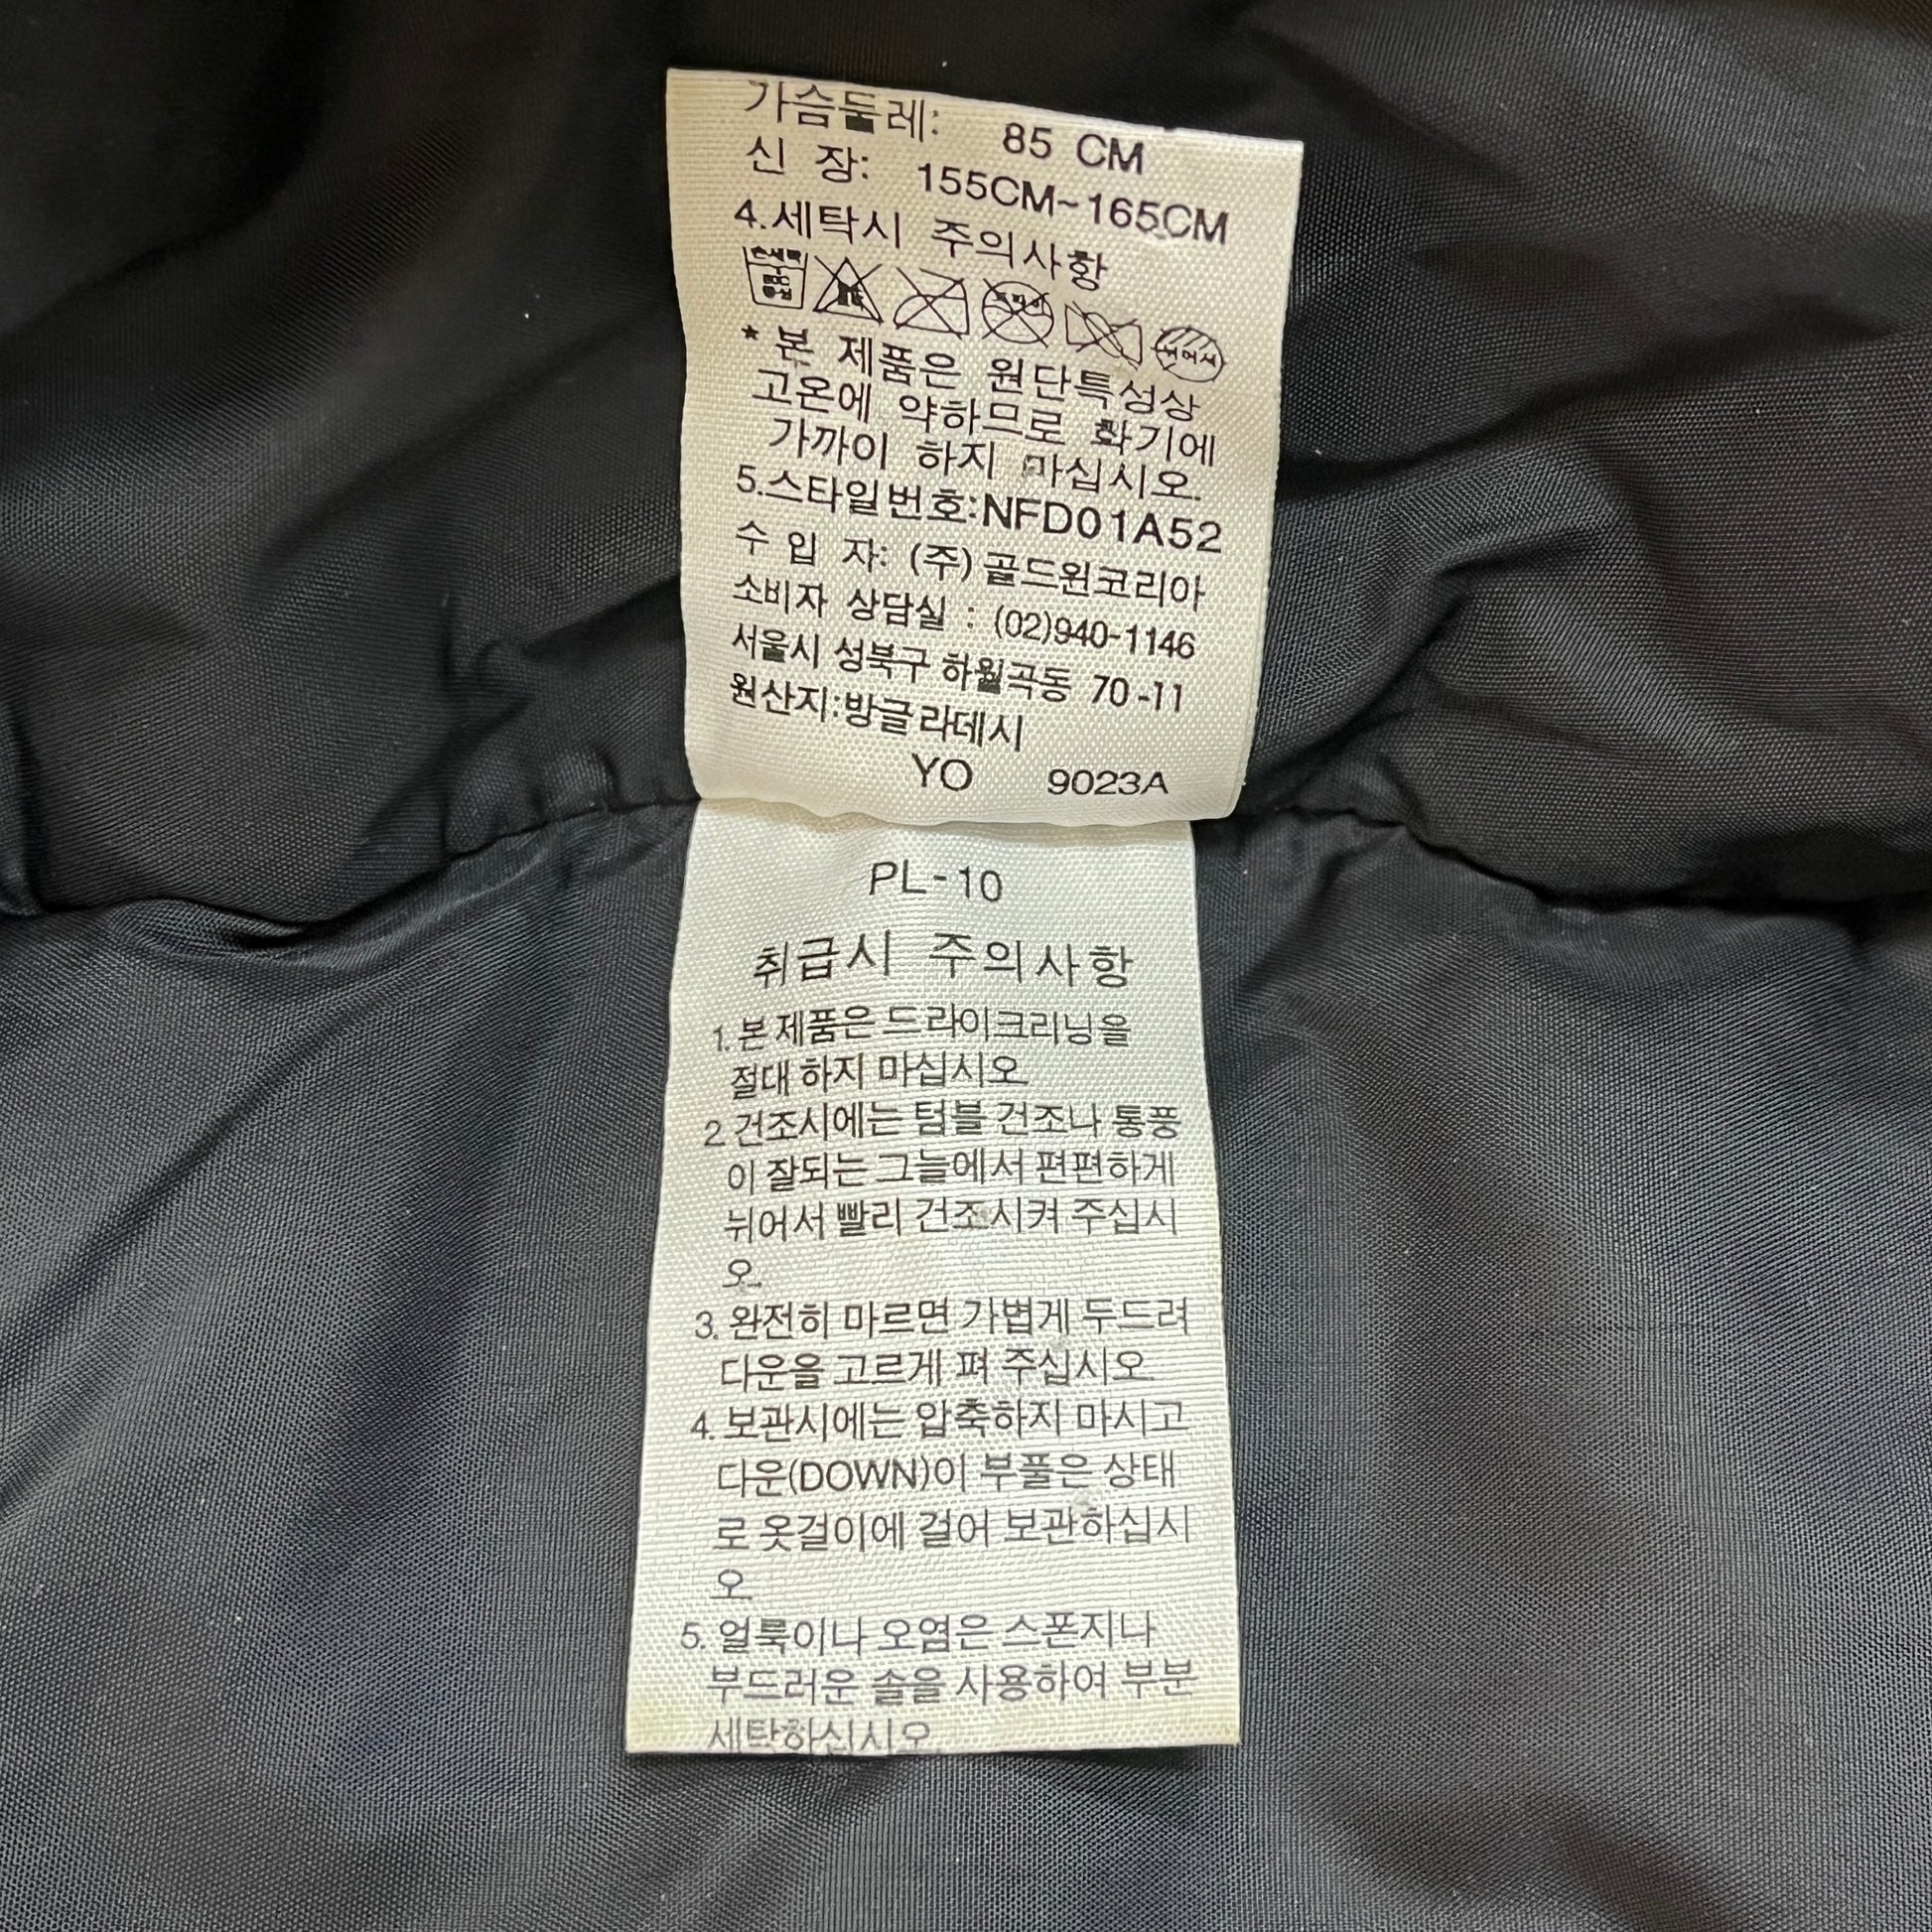 가슴둘레: 85 CM
신 장: 155CM~165CM
4.세탁시 주의사항
손세탁
중성
드라이
뉘어서
* 본 제품은 원단특성상
고온에 약하므로 화기에
가까이 하지 마십시오.
5.스타일번호:NFD01A52
수 입 자: (주)골드윈코리아
소비자 상담실 : (02)940-1146
서울시 성북구 하월곡동 70-11
원산지:방글라데시
YO 9023A
PL-10
취급시 주의사항
1. 본 제품은 드라이크리닝을
절대 하지 마십시오.
2. 건조시에는 텀블 건조나 통풍
이 잘되는 그늘에서 편편하게
뉘어서 빨리 건조시켜 주십시
오.
3. 완전히 마르면 가볍게 두드려
다운을 고르게 펴 주십시오.
4. 보관시에는 압축하지 마시고
다운(DOWN)이 부풀은 상태
로 옷걸이에 걸어 보관하십시
오.
5. 얼룩이나 오염은 스폰지나
부드러운 솔을 사용하여 부분
세탁하십시오.